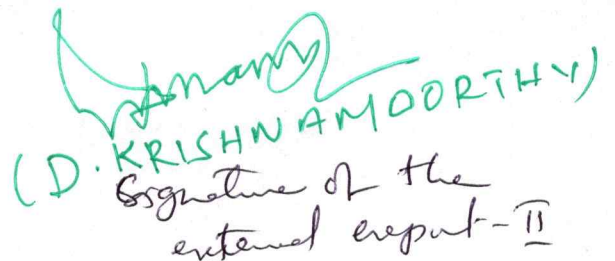 (D. KRISHNAMOORTHY)
Signature of the
external expert-II